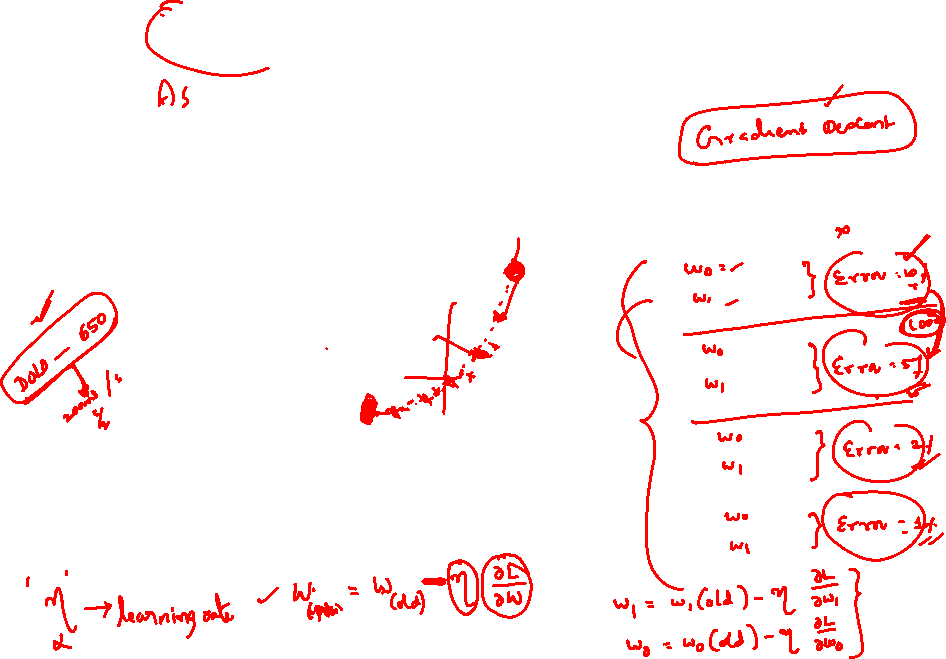 As
Gradient Descent
w₀ =
w₁
} Error =
1000
w₀
w₁
} Error = 5%
w₀
w₁
} Error = 2%
w₀
w₁
} Error = 1%
DOLO — 650
'η' → learning rate
α
W = W(old) - η ∂L/∂W
w₁ = w₁(old) - η ∂L/∂w₁
w₀ = w₀(old) - η ∂L/∂w₀